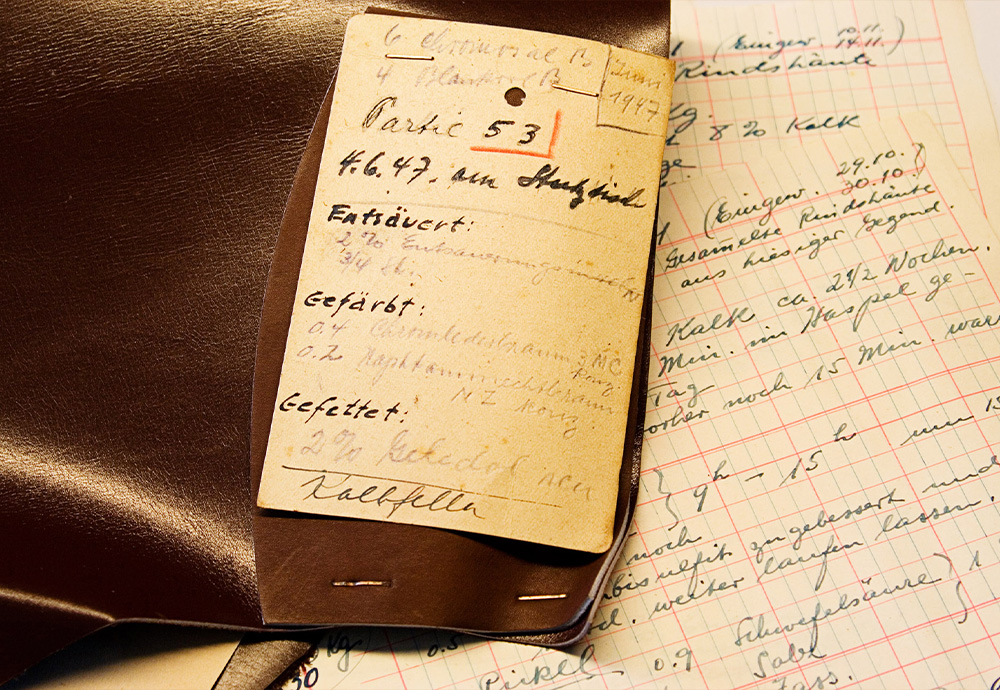 6 Chromosal B
4 Blankrol B
Juni
1947
Partie 53
4.6.47. am Stutztisch
Entsäuert:
2% Entsäuerungsmittel N
3/4 St.
Gefärbt:
0.4 Chromlederbraun 3 MC
konz.
0.2
NZ konz.
Gefettet:
2%
Kalbfelle
(Eingew. 10.11.
14.11.)
Rindshäute
8% Kalk
(Eingew. 29.10.
30.10.)
Gesamelte Rindshäute
aus hiesiger Gegend.
Kalk ca. 2 1/2 Wochen.
Min. im Haspel ge-
Tag
vorher noch 15 Min. war
9h - 15h
noch
bisulfit zugebessert und
weiter laufen lassen.
Pickel 0.9 Schwefelsäure
Salz
kg 0.5
30